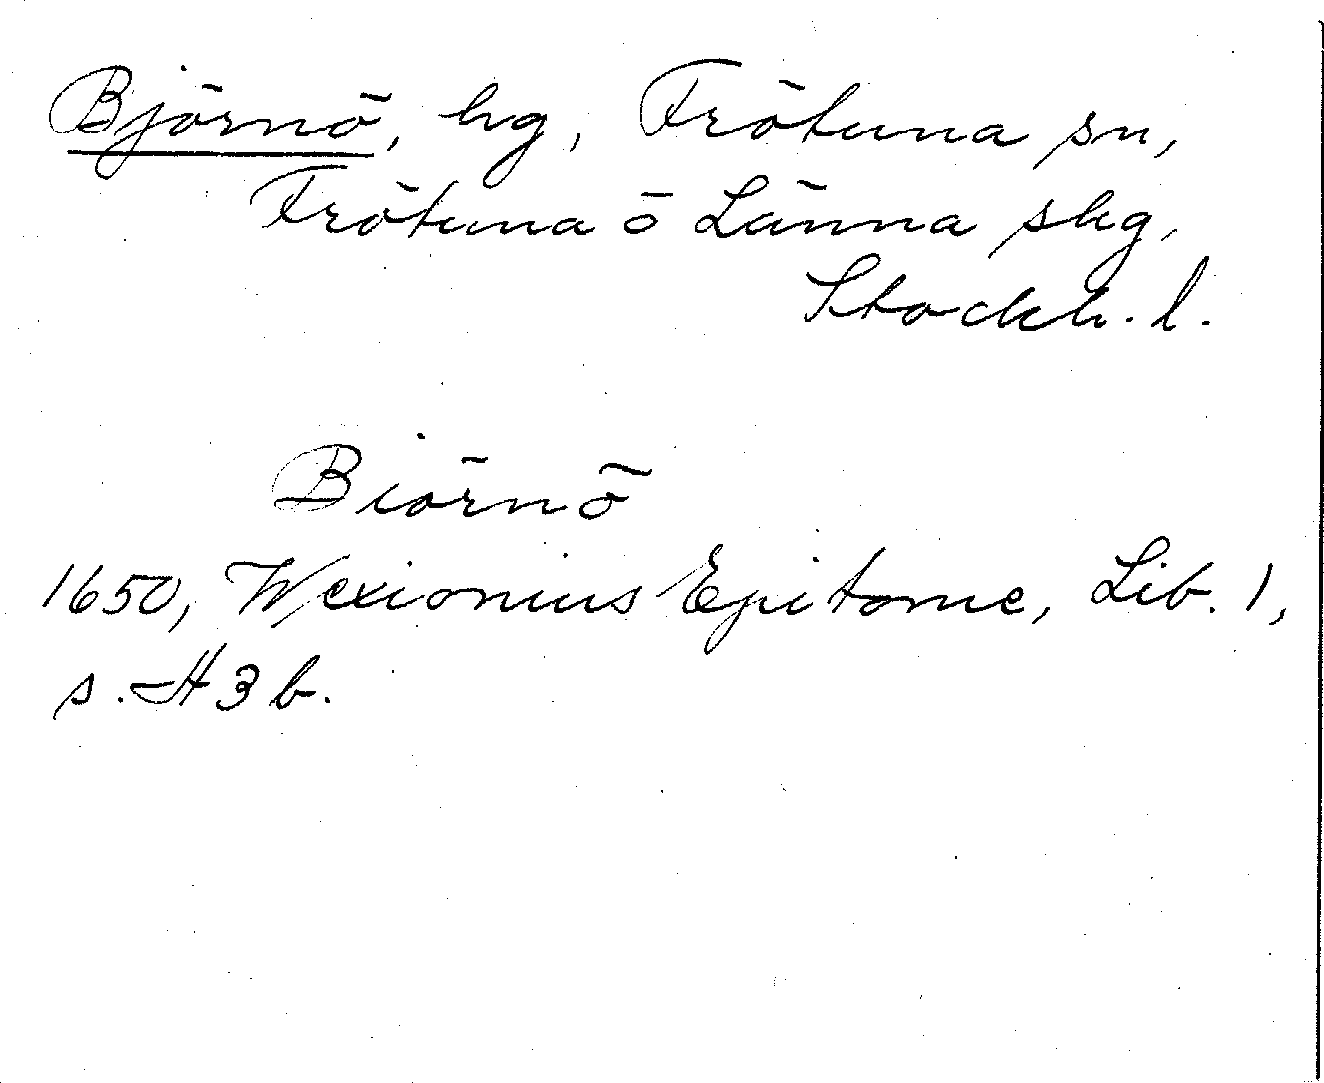 Björnö, hg, Frötuna sn,
Frötuna o Länna skg,
Stockh. l.
Biörnö
1650, Wexionius Epitome, Lib. 1,
s. H 3 b.